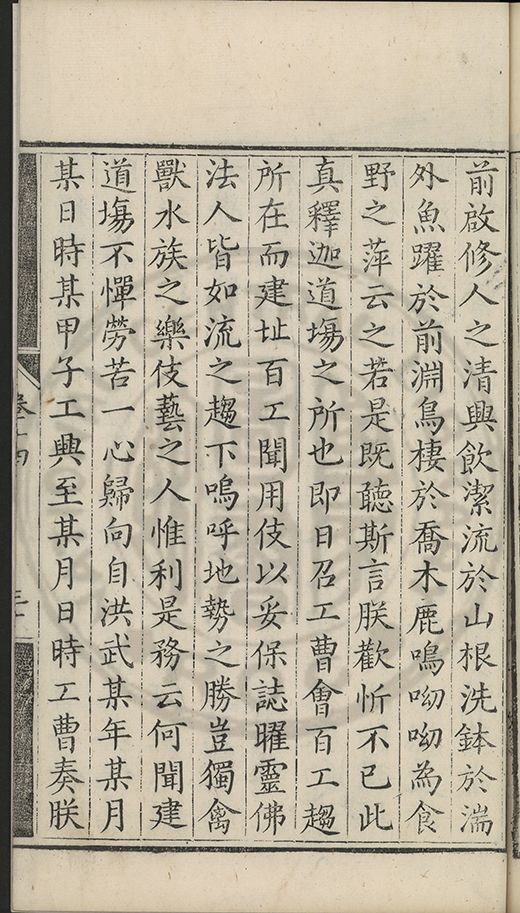 前啟修人之清興飲潔流於山根洗鉢於湍
外魚躍於前淵鳥棲於喬木鹿鳴呦呦為食
野之萍云之若是既聽斯言朕歡忻不已此
真釋迦道塲之所也即日召工曹會百工趨
所在而建址百工聞用伎以妥保誌曜靈佛
法人皆如流之趨下嗚呼地勢之勝豈獨禽
獸水族之樂伎藝之人惟利是務云何聞建
道塲不憚勞苦一心歸向自洪武某年某月
某日時某甲子工興至某月日時工曹奏朕
卷十四